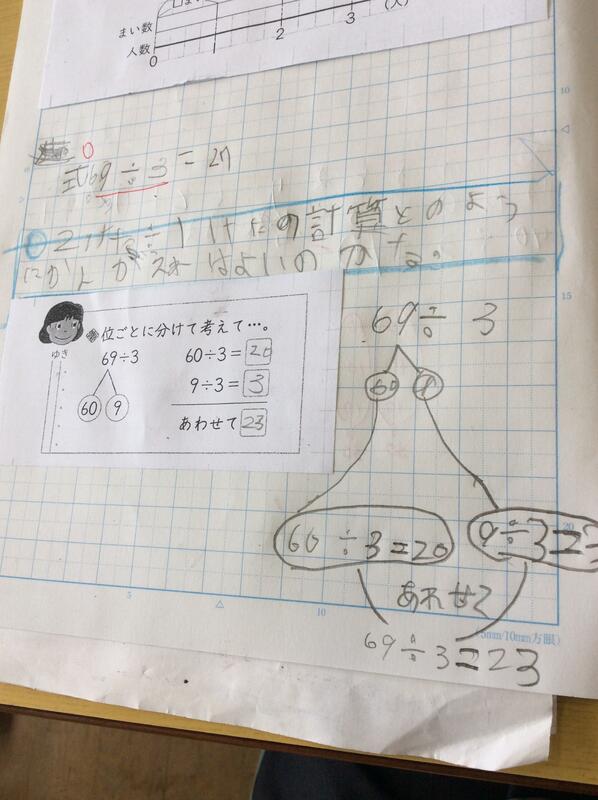 まい数
人数
0 1 2 3 (人)
10
0
式69÷3=2
2けた÷1けたの計算どのよう
にかんがえればよいのかな。
15
位ごとに分けて考えて…。
ゆき
69÷3
60÷3=20
60 9
9÷3=3
あわせて 23
69÷3
60 9
20
60÷3=20
9÷3=3
あわせて
5 10
5mm/10mm方眼)
69÷3=23